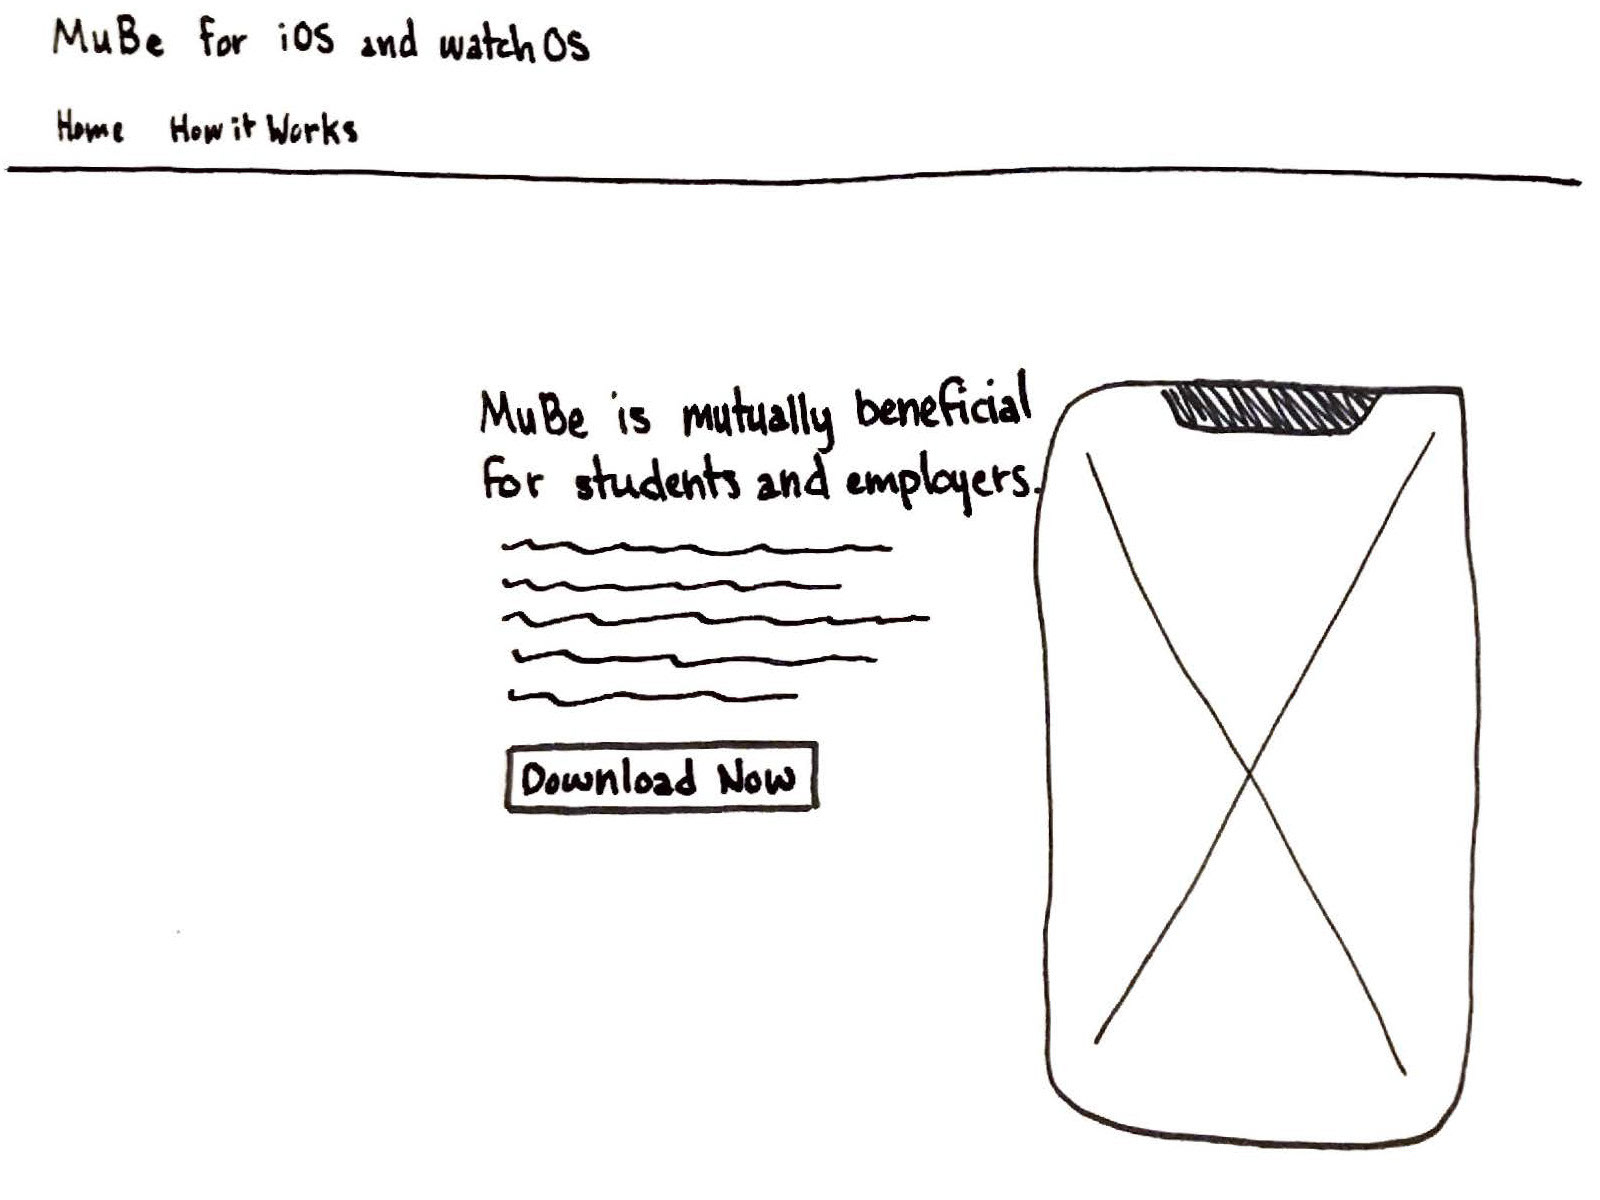 MuBe for iOS and watchOS
Home How it Works
MuBe is mutually beneficial
for students and employers.
Download Now